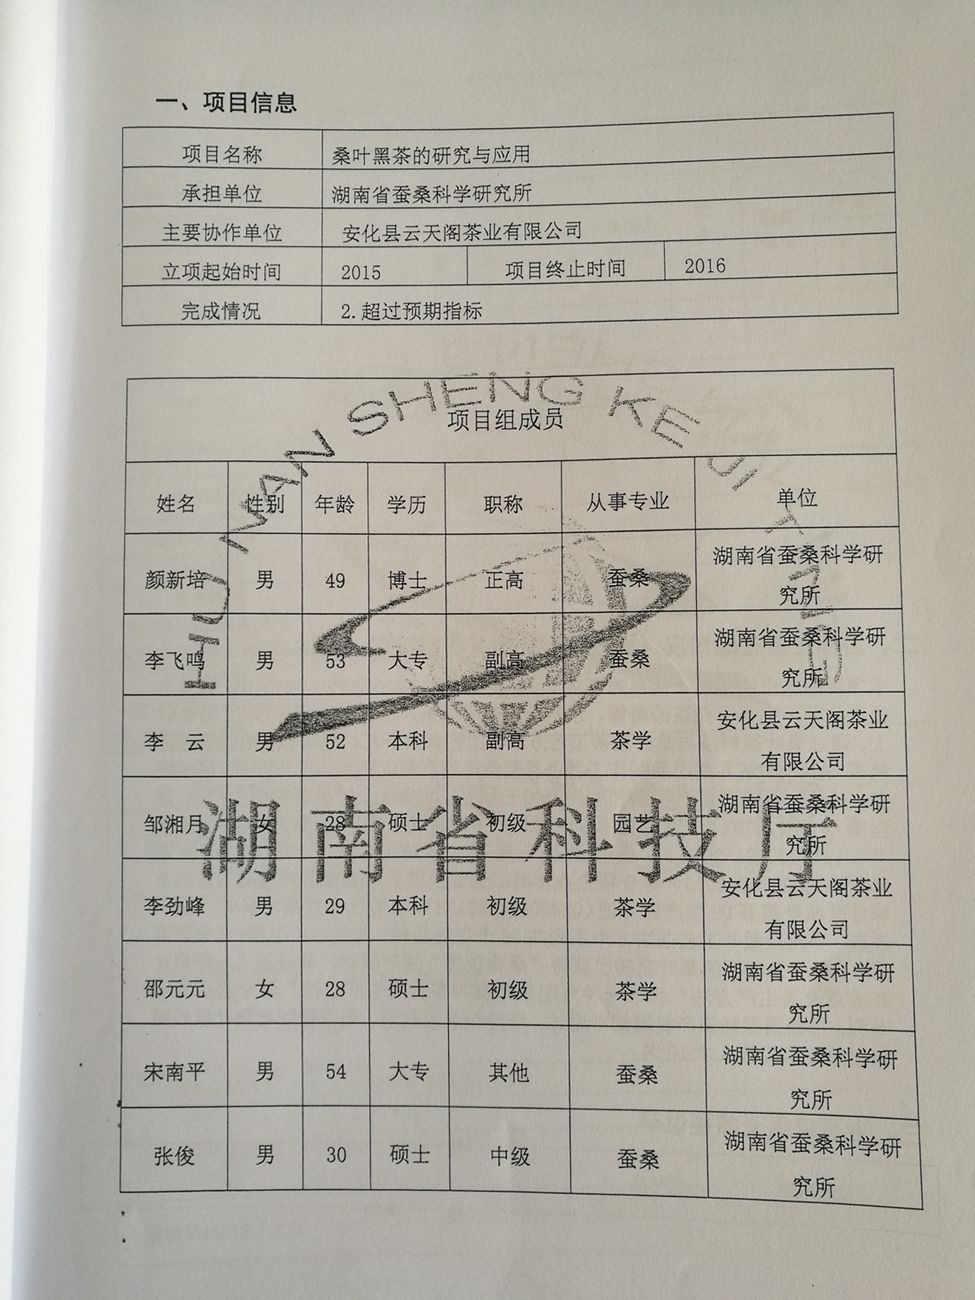 一、项目信息
项目名称 桑叶黑茶的研究与应用
承担单位 湖南省蚕桑科学研究所
主要协作单位 安化县云天阁茶业有限公司
立项起始时间 2015 项目终止时间 2016
完成情况 2.超过预期指标
HU NAN SHENG KE JI TING
项目组成员
姓名 性别 年龄 学历 职称 从事专业 单位
颜新培 男 49 博士 正高 蚕桑 湖南省蚕桑科学研
究所
李飞鸣 男 53 大专 副高 蚕桑 湖南省蚕桑科学研
究所
李 云 男 52 本科 副高 茶学 安化县云天阁茶业
有限公司
邹湘月 女 28 硕士 初级 园艺 湖南省蚕桑科学研
究所
湖南省科技厅
李劲峰 男 29 本科 初级 茶学 安化县云天阁茶业
有限公司
邵元元 女 28 硕士 初级 茶学 湖南省蚕桑科学研
究所
宋南平 男 54 大专 其他 蚕桑 湖南省蚕桑科学研
究所
张俊 男 30 硕士 中级 蚕桑 湖南省蚕桑科学研
究所